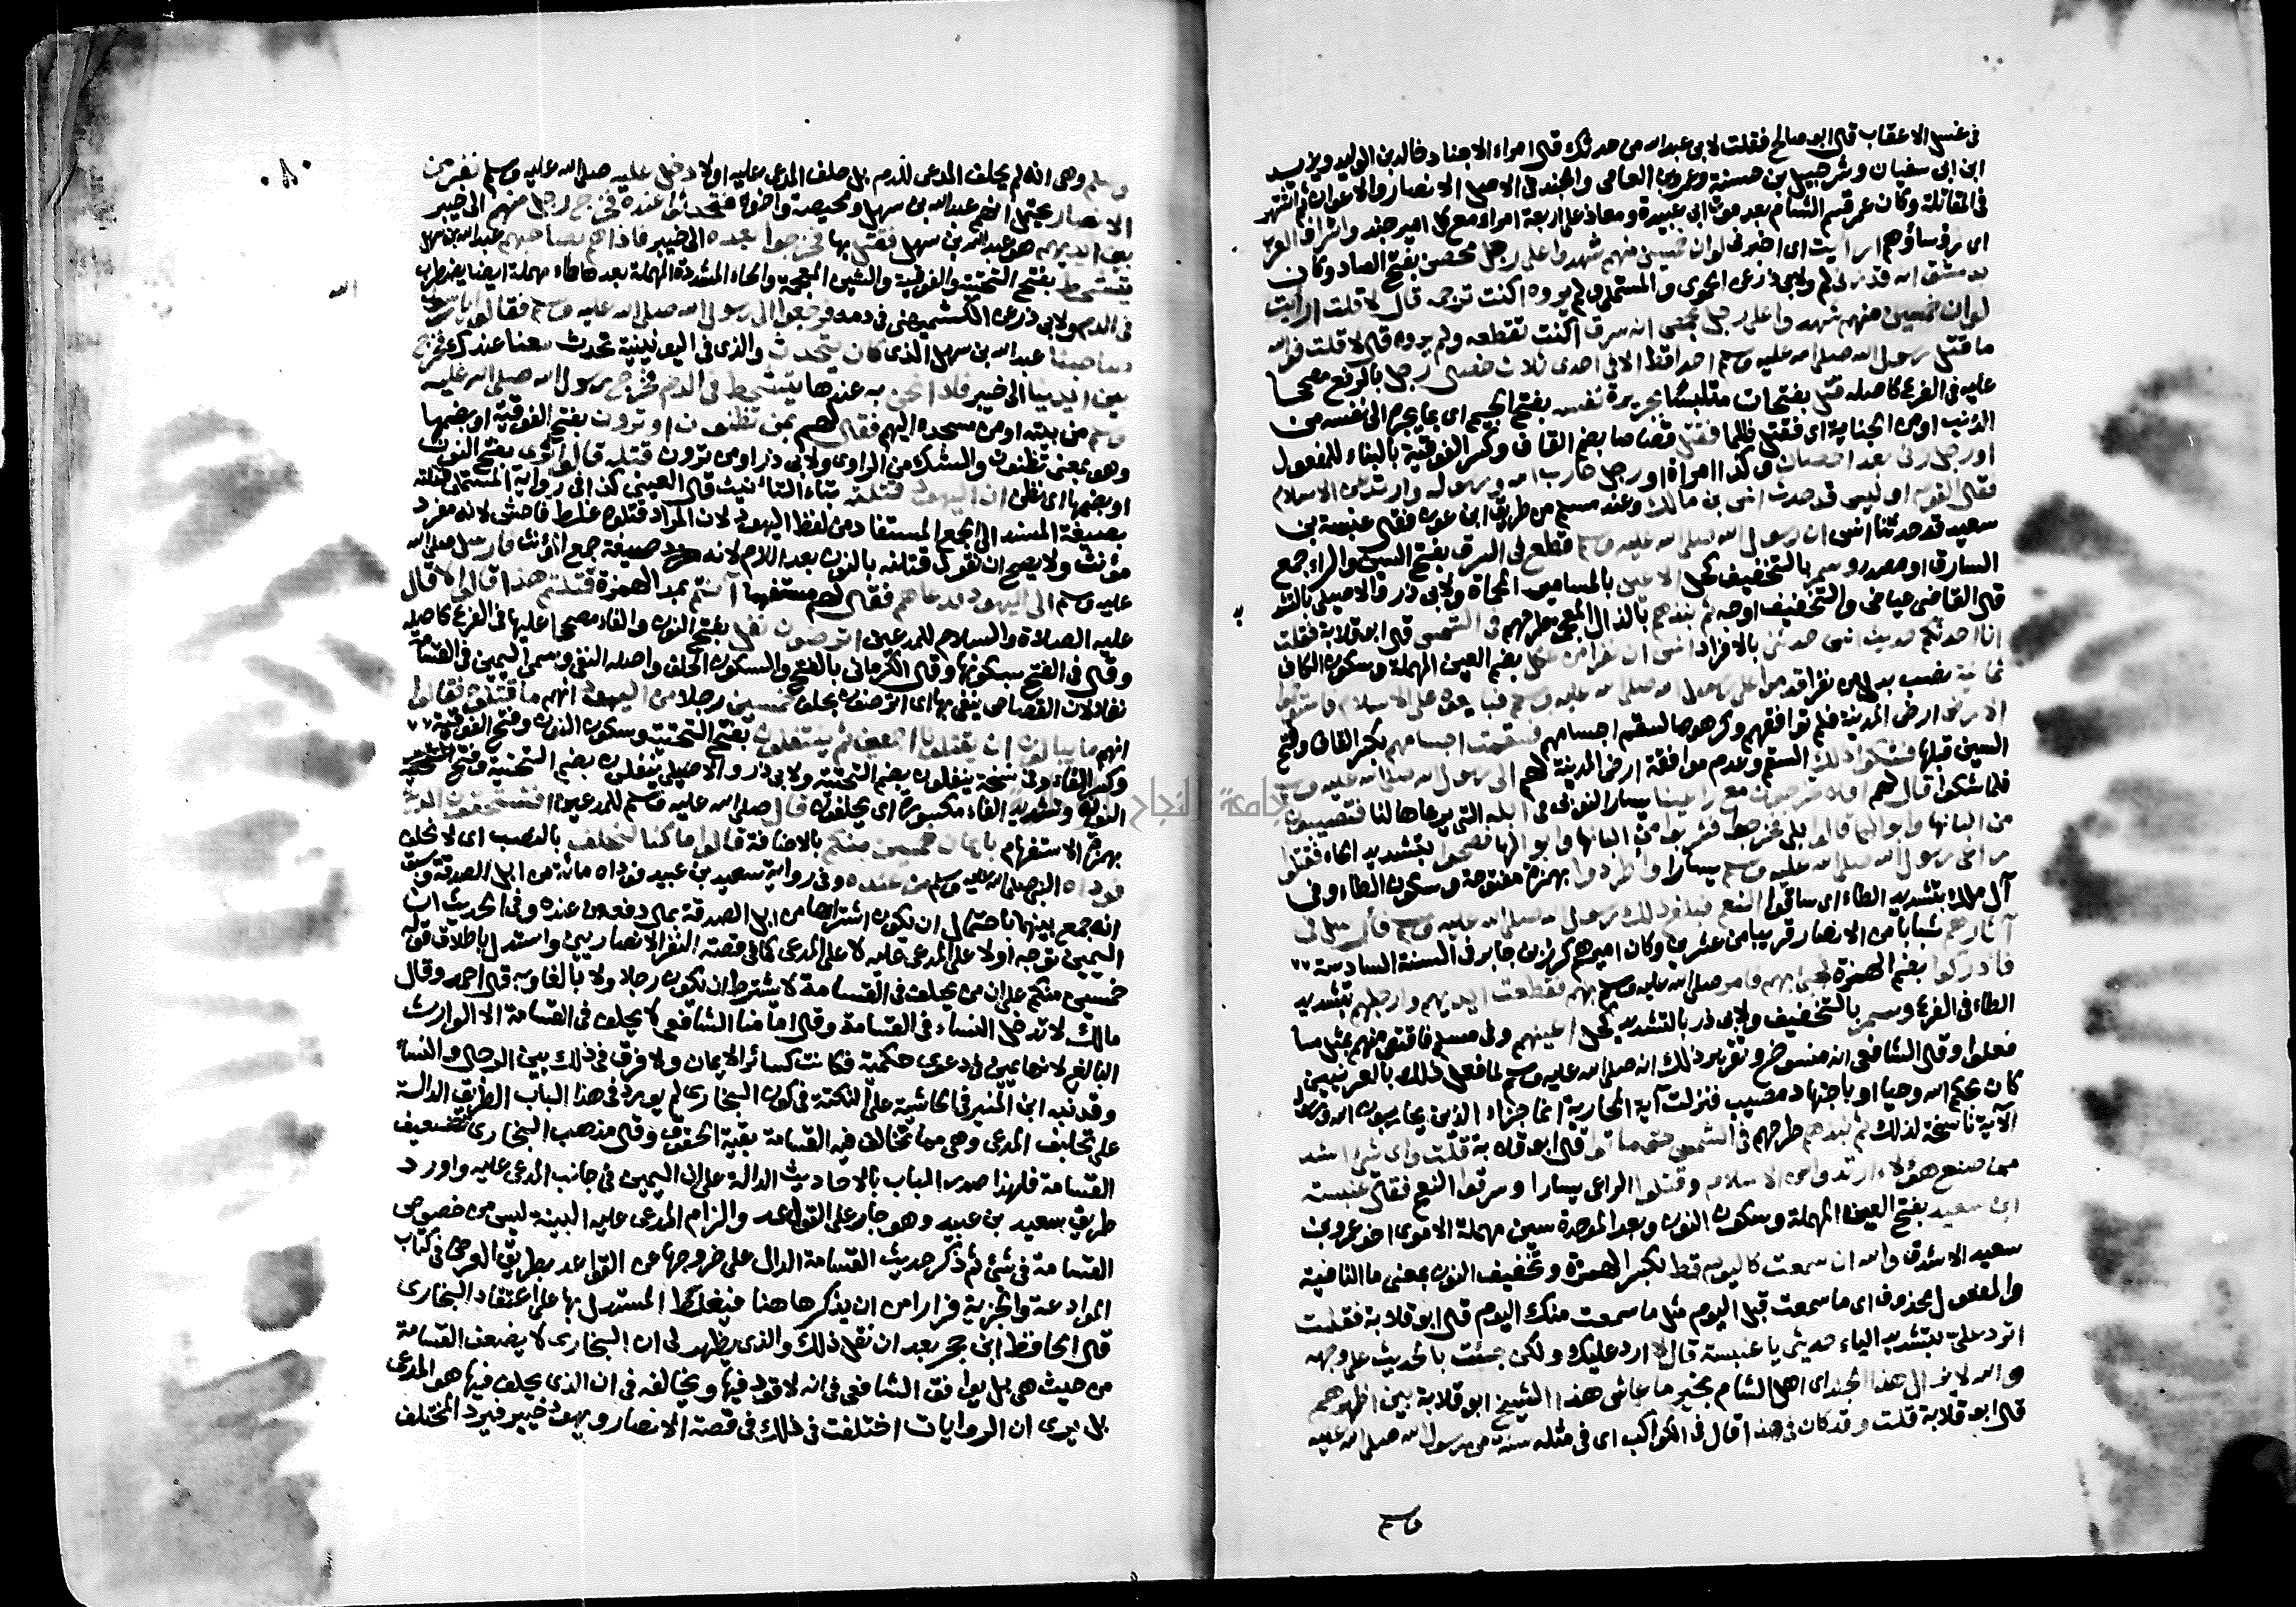 في غسل الاعقاب قال ابو صالح فقلت لابي عبد الله من حدثك قال امراء الاجناد خالد بن الوليد ويزيد
ابن ابي سفيان وشرحبيل بن حسنة وعمرو بن العاصي والجند في الاصل الانصار والاعوان ثم اشتهر
في المقاتلة وكان عمر قسم الشام بعد موت ابي عبيدة ومعاذ على اربعة امراء مع كل امير جند واشراف العرب
اى رؤساؤهم ارايت اى اخبرني لو ان خمسين منهم شهدوا على رجل محصن بفتح الصاد وكان
بدمشق انه قد زنى لم ولابي ذر عن الحموي والمستملي ولم يروه اكنت ترجمه قال لا قلت ارايت
لو ان خمسين منهم شهدوا على رجل بحمص انه سرق اكنت تقطعه ولم يروه قال لا قلت فوالله
ما قتل رسول الله صلى الله عليه وسلم احدا قط الا في احدى ثلاث خصال رجل بالرفع مصححا
عليه في الفرع كاصله قتل بفتحات متلبسا بجريرة نفسه بفتح الجيم اى بما يجره الى نفسه من
الذنب او من الجناية اى فقتل ظلما فقتل قصاصا بضم القاف وكسر الفوقية بالبناء للمفعول
او رجل زنى بعد احصان وكذا امراة او رجل حارب الله ورسوله وارتد عن الاسلام
فقال القوم او ليس قد حدث انس بن مالك وعند مسلم من طريق ابن عون فقال عنبسة بن
سعيد قد حدثنا انس ان رسول الله صلى الله عليه وسلم قطع في السرق بفتح السين والراء جمع
السارق او مصدر وسمر بالتخفيف كحل الاعين بالمسامير المحماة ولابي ذر والاصيلي بالتشد
قال القاضي عياض والتخفيف اوجه ثم نبذهم بالذال المعجمة طرحهم في الشمس قال ابو قلابة فقلت
انا احدثكم حديث انس حدثني بالافراد انس ان نفرا من عكل بضم العين المهملة وسكون الكاف
ثمانية نصب بدل من نفرا قدموا على رسول الله صلى الله عليه وسلم فبايعوه على الاسلام فاستوخموا
الارض ارض المدينة فلم توافقهم وكرهوها لسقم اجسامهم فسقمت اجسامهم بكسر القاف وفتح
السين قبلها فشكوا ذلك السقم وعدم موافقة ارض المدينة لهم الى رسول الله صلى الله عليه وسلم
فلما شكوا قال لهم افلا تخرجون مع راعينا يسار النوبي في ابله التي يرعاها لنا فتصيبون
من البانها وابوالها قالوا بلى فخرجوا فشربوا من البانها وابوالها فصحوا بتشديد الحاء فقتلوا
راعي رسول الله صلى الله عليه وسلم يسارا واطردوا بهمزة مفتوحة وسكون الطاء وفي
آل ملك بتشديد الطاء اى ساقوا النعم فبلغ ذلك رسول الله صلى الله عليه وسلم فارسل في
آثارهم شبابا من الانصار قريبا من عشرين وكان اميرهم كرز بن جابر في السنة السادسة
فادركوا بضم الهمزة فجئ بهم فامر صلى الله عليه وسلم بهم فقطعت ايديهم وارجلهم بتشديد
الطاء في الفرع وسمر بالتخفيف ولابي ذر بالتشديد كحل اعينهم وفي مسلم فاقتص منهم بمثل ما
فعلوا وقال الشافعي انه منسوخ وتقرير ذلك انه صلى الله عليه وسلم لما فعل ذلك بالعرنيين
كان بحكم الله وحيا او باجتهاد مصيب فنزلت آية المحاربة انما جزاء الذين يحاربون الله ورسوله
الآية ناسخة لذلك ثم نبذهم طرحهم في الشمس حتى ماتوا قال ابو قلابة قلت واى شئ اشد
مما صنع هؤلاء ارتدوا عن الاسلام وقتلوا الراعي يسارا وسرقوا النعم فقال عنبسة
ابن سعيد بفتح العين المهملة وسكون النون وبعد الموحدة سين مهملة الاموى اخو عمرو بن
سعيد الاشدق والله ان سمعت كاليوم قط بكسر الهمزة وتخفيف النون بمعنى ما النافية
والمفعول محذوف اى ما سمعت قبل اليوم مثل ما سمعت منك اليوم قال ابو قلابة فقلت
اترد علي بتشديد الياء حديثي يا عنبسة قال لا ارد عليك ولكن جئت بالحديث على وجهه
والله لا يزال هذا الجند اى اهل الشام بخير ما عاش هذا الشيخ ابو قلابة بين اظهرهم
قال ابو قلابة قلت وقد كان في هذا قال في الكواكب اى في مثله سنة من رسول الله صلى الله عليه
وسلم
وسلم وهي انه لم يحلف المدعي للدم بل حلف المدعى عليه اولا دخل عليه صلى الله عليه وسلم نفر من
الانصار يحتمل انهم عبد الله بن سهل ومحيصة واخوه فتحدثوا عنده فخرج رجل منهم الى خيبر
بين ايديهم هو عبد الله بن سهل فقتل بها فخرجوا بعده الى خيبر فاذا هم بصاحبهم عبد الله بن سهل
يتشحط بفتح التحتية والفوقية والشين المعجمة والحاء المشددة المهملة بعدها طاء مهملة ايضا يضطرب
في الدم ولابي ذر عن الكشميهني في دمه فرجعوا الى رسول الله صلى الله عليه وسلم فقالوا يا رسول
الله
صاحبنا عبد الله بن سهل الذي كان يتحدث والذي في اليونينية تحدث معنا عندك فخرج
بين ايدينا الى خيبر فاذا نحن به عندها يتشحط في الدم فخرج رسول الله صلى الله عليه
وسلم من بيته او من مسجده اليهم فقال لهم بمن تظنون او ترون بفتح الفوقية او بضمها
وهو بمعنى تظنون والشك من الراوى ولابي ذر او من ترون قتله قالوا نرى بفتح النون
او بضمها اى نظن ان اليهود قتلته بتاء التانيث قال العيني كذا في رواية المستملي قتلته
بصيغة المسند الى الجمع المستفاد من لفظ اليهود لان المراد قتلوه غلط فاحش لانه مفرد
مؤنث ولا يصح ان نقول قتلنه بالنون بعد اللام لانه صيغة جمع المؤنث فارسل صلى الله
عليه وسلم الى اليهود فدعاهم فقال لهم مستفهما آنتم بمد الهمزة قتلتم هذا قالوا لا قال
عليه الصلاة والسلام للمدعين اترضون نفل بفتح النون والفاء مصححا عليها في الفرع كاصله
وقال في الفتح بسكونها وقال الكرماني بالفتح والسكون الحلف واصله النفي وسمي اليمين في القسامة
نفلا لان القصاص ينفى بها اى اترضون بحلف خمسين رجلا من اليهود انهم ما قتلوه فقالوا
انهم ما يبالون ان يقتلونا اجمعين ثم ينتفلون بفتح التحتية وسكون النون وفتح الفوقية
وكسر الفاء وفي نسخة ينفلون بضم التحتية ولابي ذر والاصيلي ينفلون بضم التحتية وفتح
النون وتشديد الفاء مكسورة اى يحلفون قال صلى الله عليه وسلم للمدعين افتستحقون الدية
بهمزة الاستفهام بايمان خمسين منكم بالاضافة قالوا ما كنا لنحلف بالنصب اى لان نحلف
فوداه النبي صلى الله عليه وسلم من عنده وفي رواية سعيد بن عبيد فوداه مائة من ابل الصدقة وسبق
انه جمع بينهما باحتمال ان يكون اشتراها من ابل الصدقة بمال دفعه من عنده وفي الحديث ان
اليمين توجه اولا على المدعى عليه لا على المدعي كما في قصة النفر الانصاريين واستدل باطلاق قوله
خمسين منكم على ان من يحلف في القسامة لا يشترط ان يكون رجلا ولا بالغا وبه قال احمد وقال
مالك لا تدخل النساء في القسامة وقال امامنا الشافعي لا يحلف في القسامة الا الوارث
البالغ لانها يمين في دعوى حكمية فكانت كسائر الايمان ولا فرق في ذلك بين الرجال والنساء
وقد نبه ابن المنير في الحاشية على النكتة في كون البخاري لم يورد في هذا الباب الطريق الدالة
على تحليف المدعي وهي مما تخالف فيه القسامة بقية الحقوق وقال مذهب البخاري تضعيف
القسامة فلهذا صدر الباب بالاحاديث الدالة على ان اليمين في جانب المدعى عليه واورد
طريق سعيد بن عبيد وهو جار على القواعد والزام المدعى عليه البينة ليس من خصوص
القسامة في شئ ثم ذكر حديث القسامة الدال على خروجها عن القواعد بطريق العرض في كتاب
الموادعة والجزية فرارا من ان يذكرها هنا فيغلط المستدل بها على اعتقاد البخارى
قال الحافظ ابن حجر بعد ان نقل ذلك والذي يظهر لي ان البخارى لا يضعف القسامة
من حيث هي بل يوافق الشافعي في انه لا قود فيها ويخالفه في ان الذي يحلف فيها هو المدعي
بل يرى ان الروايات اختلفت في ذلك في قصة الانصار ويهود خيبر فيرد المختلف
جامعة النجاح